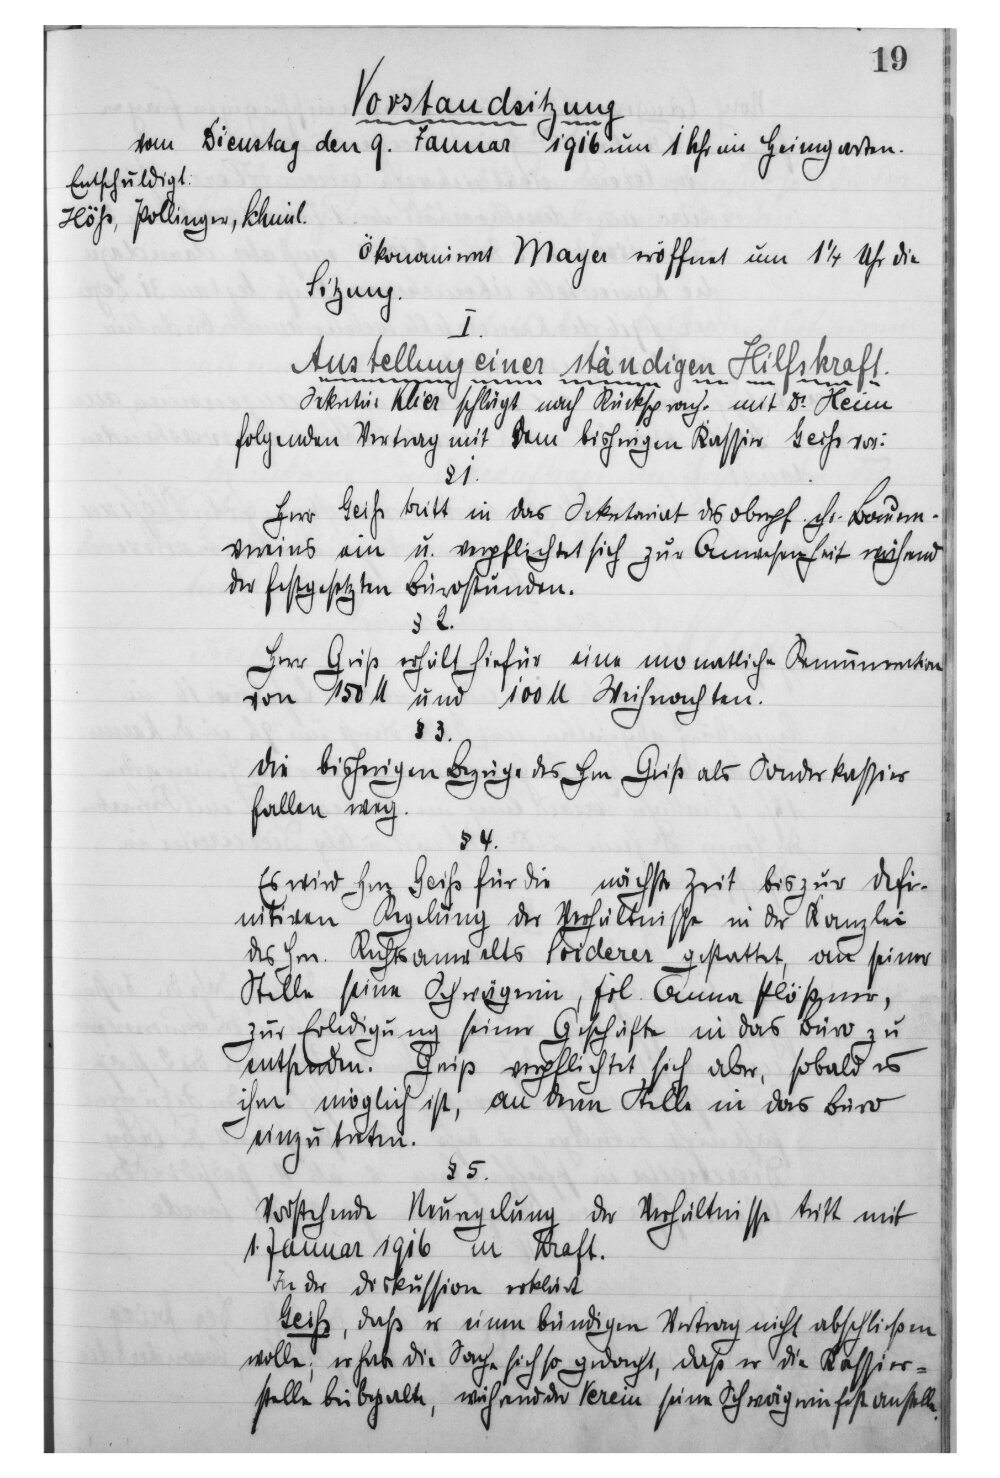 19
Vorstandsitzung
vom Dienstag den 9. Januar 1916 um 1 Uhr im Heimgarten.
Entschuldigt:
Höß, Pollinger,
Ökonomierat Mayer eröffnet um 1¼ Uhr die
Sitzung.
I.
Anstellung einer ständigen Hilfskraft.
Sekretär Klier schlägt nach Rücksprache mit Dr. Heim
folgenden Vertrag mit dem bisherigen Kassier Geiß vor:
§ 1.
Herr Geiß tritt in das Sekretariat des oberpf. chr. Bauern-
vereins ein u. verpflichtet sich zur Anwesenheit während
der festgesetzten Bürostunden.
§ 2.
Herr Geiß erhält hiefür eine monatliche Remuneration
von 150 M und 100 M Weihnachten.
§ 3.
Die bisherigen Bezüge des Hrn Geiß als Sonderkassier
fallen weg.
§ 4.
Es wird Hrn Geiß für die nächste Zeit bis zur defi-
nitiven Regelung der Verhältnisse in der Kanzlei
des Hrn. Rechtsanwalts Loiderer gestattet, an seiner
Stelle seine Schwägerin, Frl. Anna Plößner,
zur Erledigung seiner Geschäfte in das Büro zu
entsenden. Geiß verpflichtet sich aber, sobald es
ihm möglich ist, an deren Stelle in das Büro
einzutreten.
§ 5.
Vorstehende Neuregelung der Verhältnisse tritt mit
1. Januar 1916 in Kraft.
In der Diskussion erklärt
Geiß, daß er einen bündigen Vertrag nicht abschließen
wolle; er habe die Sache sich so gedacht, daß er die Kassier-
stelle beibehalte, während der Verein seine Schwägerin fest anstelle.